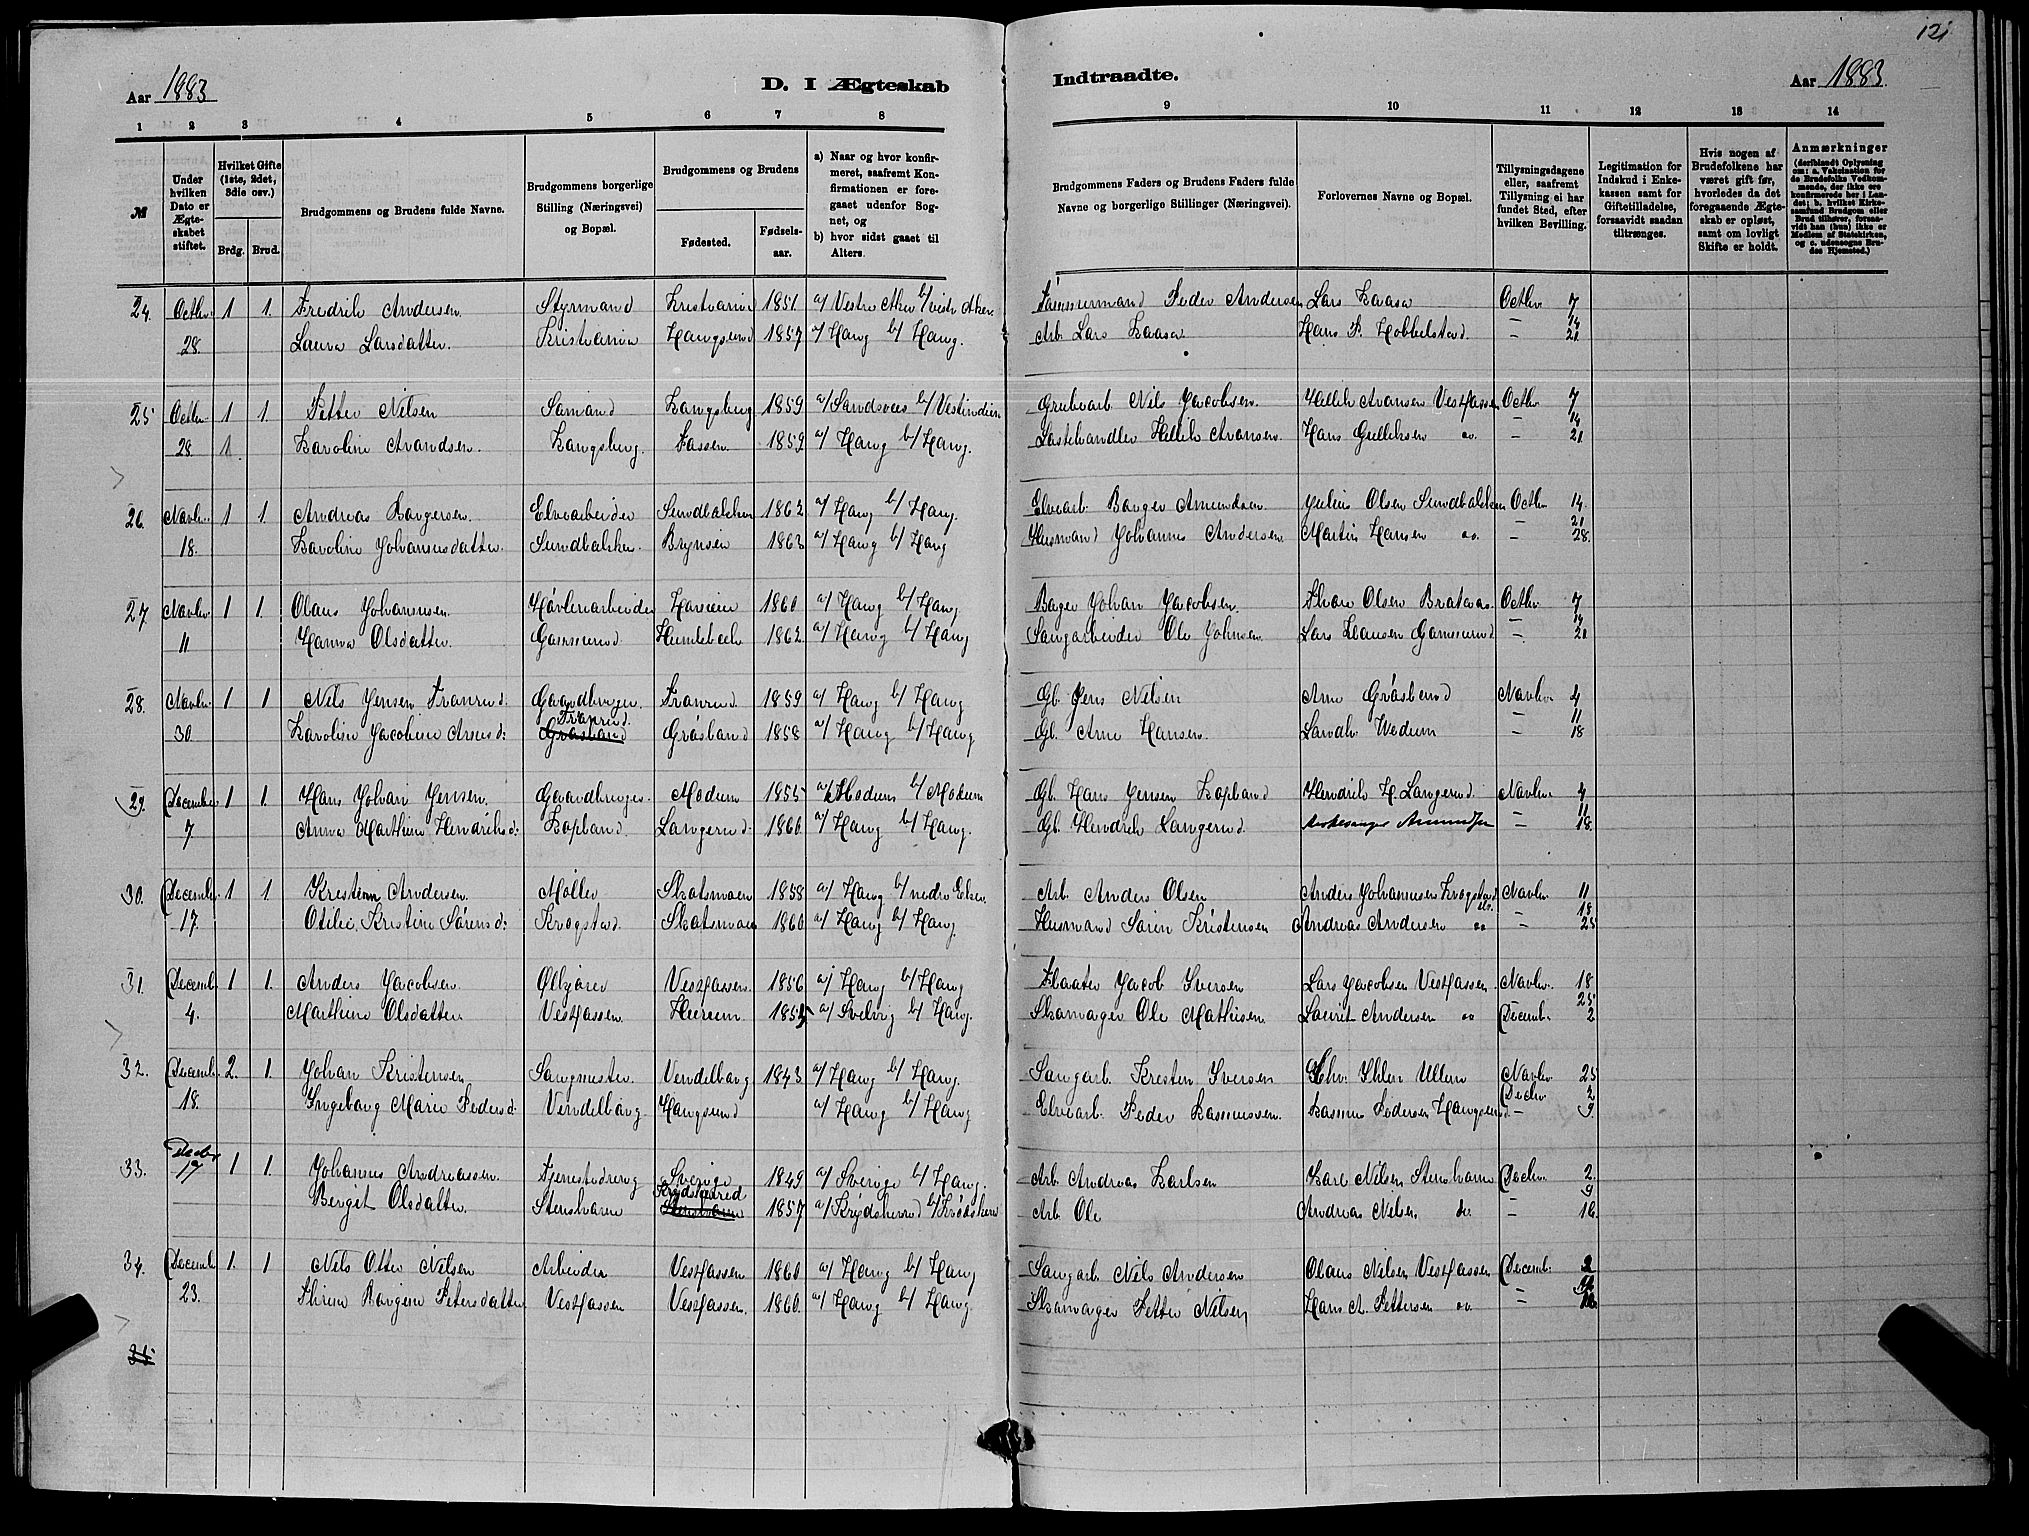 121
Aar 1883
D. I Ægteskab Indtraadte.
Aar 1883.
1 2 3 4 5 6 7 8 9 10 11 12 13 14
№
Under hvilken Dato er Ægteskabet stiftet.
Hvilket Gifte (1ste, 2det, 3die osv.)
Brdg. Brud.
Brudgommens og Brudens fulde Navne.
Brudgommens borgerlige Stilling (Næringsvei) og Bopæl.
Brudgommens og Brudens
Fødested.
Fødsels-aar.
a) Naar og hvor konfirmeret, saafremt Konfirmationen er foregaaet udenfor Sognet, og
b) hvor sidst gaaet til Alters.
Brudgommens Faders og Brudens Faders fulde Navne og borgerlige Stillinger (Næringsvei).
Forlovernes Navne og Bopæl.
Tillysningsdagene eller, saafremt Tillysning ei har fundet Sted, efter hvilken Bevilling.
Legitimation for Indskud i Enkekassen samt for Giftetilladelse, forsaavidt saadan tiltrænges.
Hvis nogen af Brudefolkene har været gift før, hvorledes da det foregaaende Ægteskab er opløst, samt om lovligt Skifte er holdt.
Anmærkninger
(deriblandt Oplysning om: a. Vakcination for de Brudefolks Vedkommende, der ikke ere konfirmerede her i Landet; b. hvilket Kirkesamfund Brudgom eller Brud tilhører, forsaavidt han (hun) ikke er Medlem af Statskirken, og c. udensogns Brudes Hjemsted.)
24. Octbr 1 1. Fredrik Andersen. Styrmand Kristiania 1851. a/ Vestre Aker b/ vestr Aker. Tømmermand Peder Andersen Lars Kaasa Octbr 7
28. Laura Larsdatter. Kristiania Haugsund 1857 a/ Haug b/ Haug. Arb. Lars Kaasa Hans P. Hobbelstad. — 14 21
25 Octbr 1 1. Petter Nilsen Sømand Kongsberg 1859 a/ Sandsvær b/ Vestindien Grubearb. Nils Jacobsen. Hellik Avansen Vestfossen Octbr 7
28 1. Karoline Avandsen. Kongsberg. Fossen. 1859 a/ Haug b/ Haug. Lastehandler Hellik Avansen. Hans Gulliksen — 14 21
26. Novbr. 1 1. Andreas Borgersen. Elvearbeider Sundbakken 1862 a/ Haug b/ Haug. Elvearb. Borger Amundsen Julius Olsen Sundbakken Octbr 14.
18. Karoline Johannesdatter. Sundbakken. Brynsen 1863 a/ Haug b/ Haug Husmand Johannes Andersen. Martin Hansen — 21 28.
27. Novbr 1 1. Olaus Johannesen. Høvleriarbeider 1860 a/ Haug b/ Haug Bager Johan Jacobsen. Thore Olsen Brataas Octbr 7
11 Hanna Olsdatter. Gommerud Humlebæk 1862. a/ Haug b/ Haug Saugarbeider Ole Johnsen. Lars Clausen Gommerud — 14 21
28. Novbr. 1 1 Nils Jensen Franrud. Gaardbruger. Franrud. 1859 a/ Haug b/ Haug Gb. Jens Nilsen Arne Gråsland Novbr. 4
30 Karoline Jacobine Arnesd: Franrud. Gråsland 1858 a/ Haug b/ Haug Gb. Arne Hansen. Landh. Wedum — 11 18
29. December 1 1. Hans Johan Jensen. Gaardbruger. Modum 1855 a/ Modum b/ Modum Gb. Hans Jensen Kopland Hendrik H. Langerud. Novbr. 4
7 Anna Marthine Hendriksd: Kopland. Langerud. 1860. a/ Haug b/ Haug. Gb. Hendrik Langerud. Kirkesanger Amundsen — 11 18.
30. Decembr. 1 1. Kristian Andersen. Møller Skotsmoen 1858 a/ Haug b/ nedre Eker. Arb. Anders Olsen Anders Johannesen Krogstad Novbr. 11
17. Otilie Kristine Sørensd: Krogstad. Skotsmoen 1860 a/ Haug b/ Haug. Husmand Søren Kristensen Andreas Andersen — 18 25
31. Decemb. 1 1. Anders Jacobsen. Ølkjører Vestfossen. 1856 a/ Haug b/ Haug Fløater Jacob Iversen Lars Jacobsen Vestfossen. Novbr. 18
4. Marthine Olsdatter Vestfossen. 1855 a/ Svelvig b/ Haug. Skomager Ole Mathisen. Laurits Andersen Decemb. 25 2
32. Decemb. 2. 1. Johan Kristensen Saugmester. Vendelborg 1843 a/ Haug b/ Haug. Saugarb. Kresten Iversen Ullern Novbr. 25
18. Ingeborg Marie Pedersd: Vendelborg. Haugsund a/ Haug b/ Haug Elvearb. Peder Rasmussen. Rasmus Pedersen Haugsund. Decbr. 2 — 9
33. Decbr 17 1 1. Johannes Andreassen. Tjenestedreng Sverige 1849 a/ Sverige b/ Haug. Arb. Andreas Karlsen Karl Nilsen Stenshorne Decbr. 2
Bergit Olsdatter. Stenshorne 1857 a/ Krydsherred b/ Krødsherd Arb. Ole Andreas Nilsen do. — 9 16.
34. Decemb 1. 1 Nils Otto Nilsen Arbeider Vestfossen 1860 a/ Haug b/ Haug Saugarb. Nils Andersen Olaus Nilsen Vestfossen Decemb. 2
23. Thrine Borgine Petersdatter Vestfossen Vestfossen. 1860. a/ Haug b/ Haug. Skomager Petter Nilsen Hans A. Pettersen —